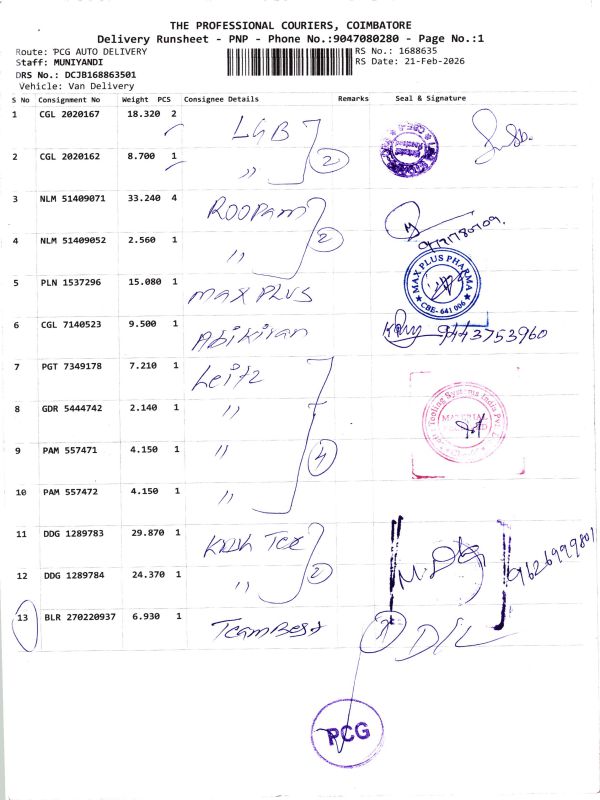 THE PROFESSIONAL COURIERS, COIMBATORE
Delivery Runsheet - PNP - Phone No.:9047080280 - Page No.:1
Route: PCG AUTO DELIVERY
RS No.: 1688635
Staff: MUNIYANDI
RS Date: 21-Feb-2026
DRS No.: DCJB168863501
Vehicle: Van Delivery
S No Consignment No Weight PCS Consignee Details Remarks Seal & Signature
1 CGL 2020167 18.320 2 LGB
2 CGL 2020162 8.700 1 〃 2
3 NLM 51409071 33.240 4 ROOPam
4 NLM 51409052 2.560 1 〃 2
5 PLN 1537296 15.080 1 MAX PLUS
MAX PLUS PHARMA
CBE- 641 006
6 CGL 7140523 9.500 1 Abikiran 9443753960
7 PGT 7349178 7.210 1 Leitz
8 GDR 5444742 2.140 1 〃
Tooling Systems India Pvt
9 PAM 557471 4.150 1 〃 4
10 PAM 557472 4.150 1 〃
11 DDG 1289783 29.870 1
9626999801
12 DDG 1289784 24.370 1 〃 2
13 BLR 270220937 6.930 1 TeamBest D/L
PCG